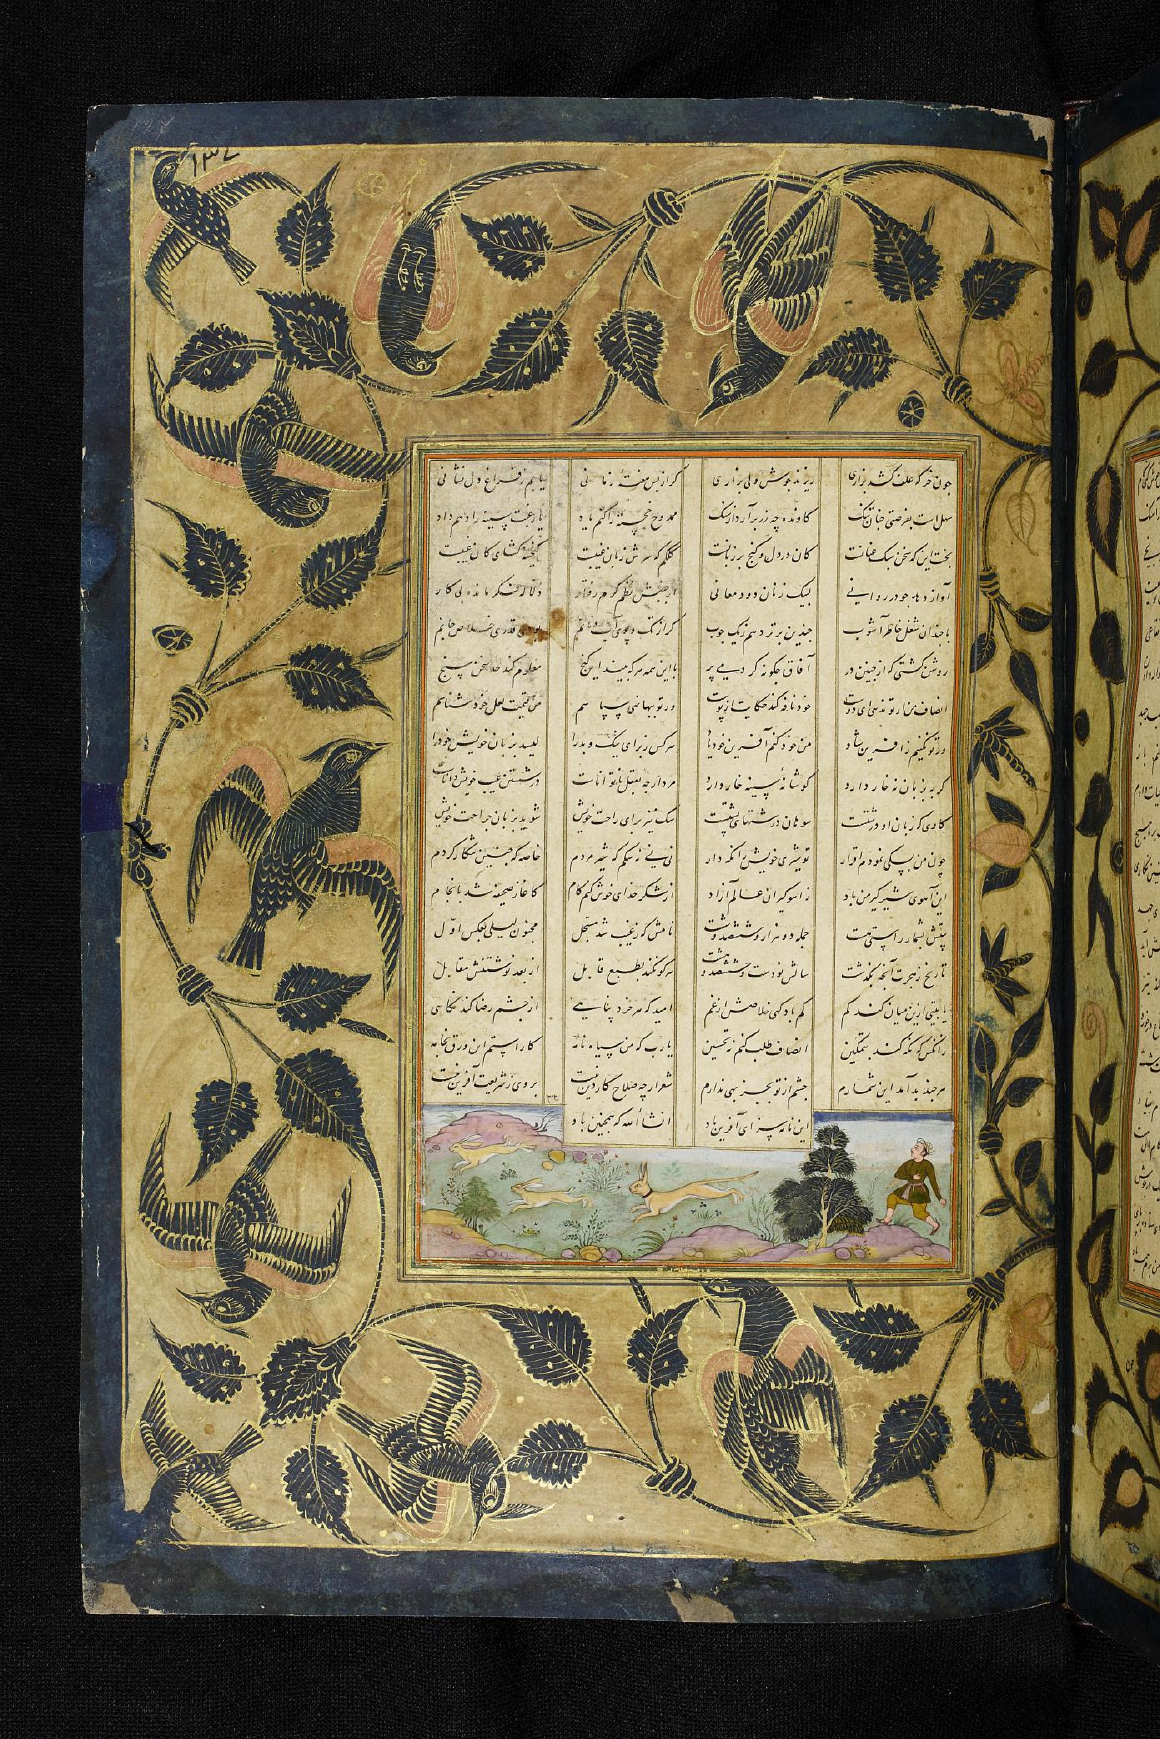 ۱۳۷
چون خر که علف کشد بزاری ریزند بپیشش ولی بزاری گر از پس هفته زمانی یابم ز فراغ دل نشانی
سهل است بفرصتی چنان تنگ کاوند چه زر برآرد از سنگ ممدوح خجسته را کنم یاد یا رغبت سینه را دهم داد
بخت این که سخن سبک عنانست کان در دل و گنج بر زبانست کلکم که سرش زبان غیبست گنجینه گشای کان غیبست
آواز دهد چو در روانی لبیک زنان دود معانی از جنبش نظم گرم رفتار دلاله فکر مانده بی کار
با چندان شغل خاطر آشوب چندین بر تر دهم زیک چوب گر از تک و پوی آب و نانم بودی قدری خلاص جانم
روشن گشتی کز این چنین در آفاق چگونه کردمی پر با این همه هر که بیند این گنج معلوم کند حد سخن سنج
انصاف من ار تو ندهی ای دوست خود نافه کند حکایت از پوست ور تو بها سپاسم من قیمت لعل خود شناسم
ور تو نکنیم ز آفرین شاد من خود کنم آفرین خود یاد هر کس ز برای نیک و بد را لیسد بزبان خویش خود را
گربه بزبان نه خار دارد کو شانه سینه خار وارد مردار چه بعقل ناتوانست در شستن عیب خویش دانست
گاوی که زبان او درشتست سوهان درشتهای پشتست سگ نیز برای راحت خویش شوید بزبان جراحت خویش
چون من بسگی نمودم اقرار تو شیری خویشتن نگه دار نی نی ز سگم که شیر مردم خاصه که چنین شکار کردم
این آهوی شیر گیر من باد ز آهو گیران عالم آزاد از شکر خدای خوش کنم کام کاغاز صحیفه شد بانجام
بیتش بشمار راستی هست جمله دو هزار و ششصد و شصت نامش که ز غیب شد مسجل مجنون لیلی بعکس اول
تاریخ ز هجرت آنچه بگذشت سالش نود است و ششصد و هشت هر کو نکند بطبع قابل از بعد نوشتنش مقابل
یا بیتی ازین میان کند کم کم باد گهی خلاصش از غم امید که هر خرد پناهی از چشم رضا کند نگاهی
زانکس که نگه کند بتمکین انصاف طلب کنم نه تحسین یارب که من سیاه نامه کاراستم این ورق بخامه
هر چند بد آمد این شمارم چشم از تو بجز بهی ندارم شعر ار چه صلاح کار دین نیست بر وی ز شریعت آفرین نیست
این نامه سزای آفرین باد انشاءالله که همچنین باد